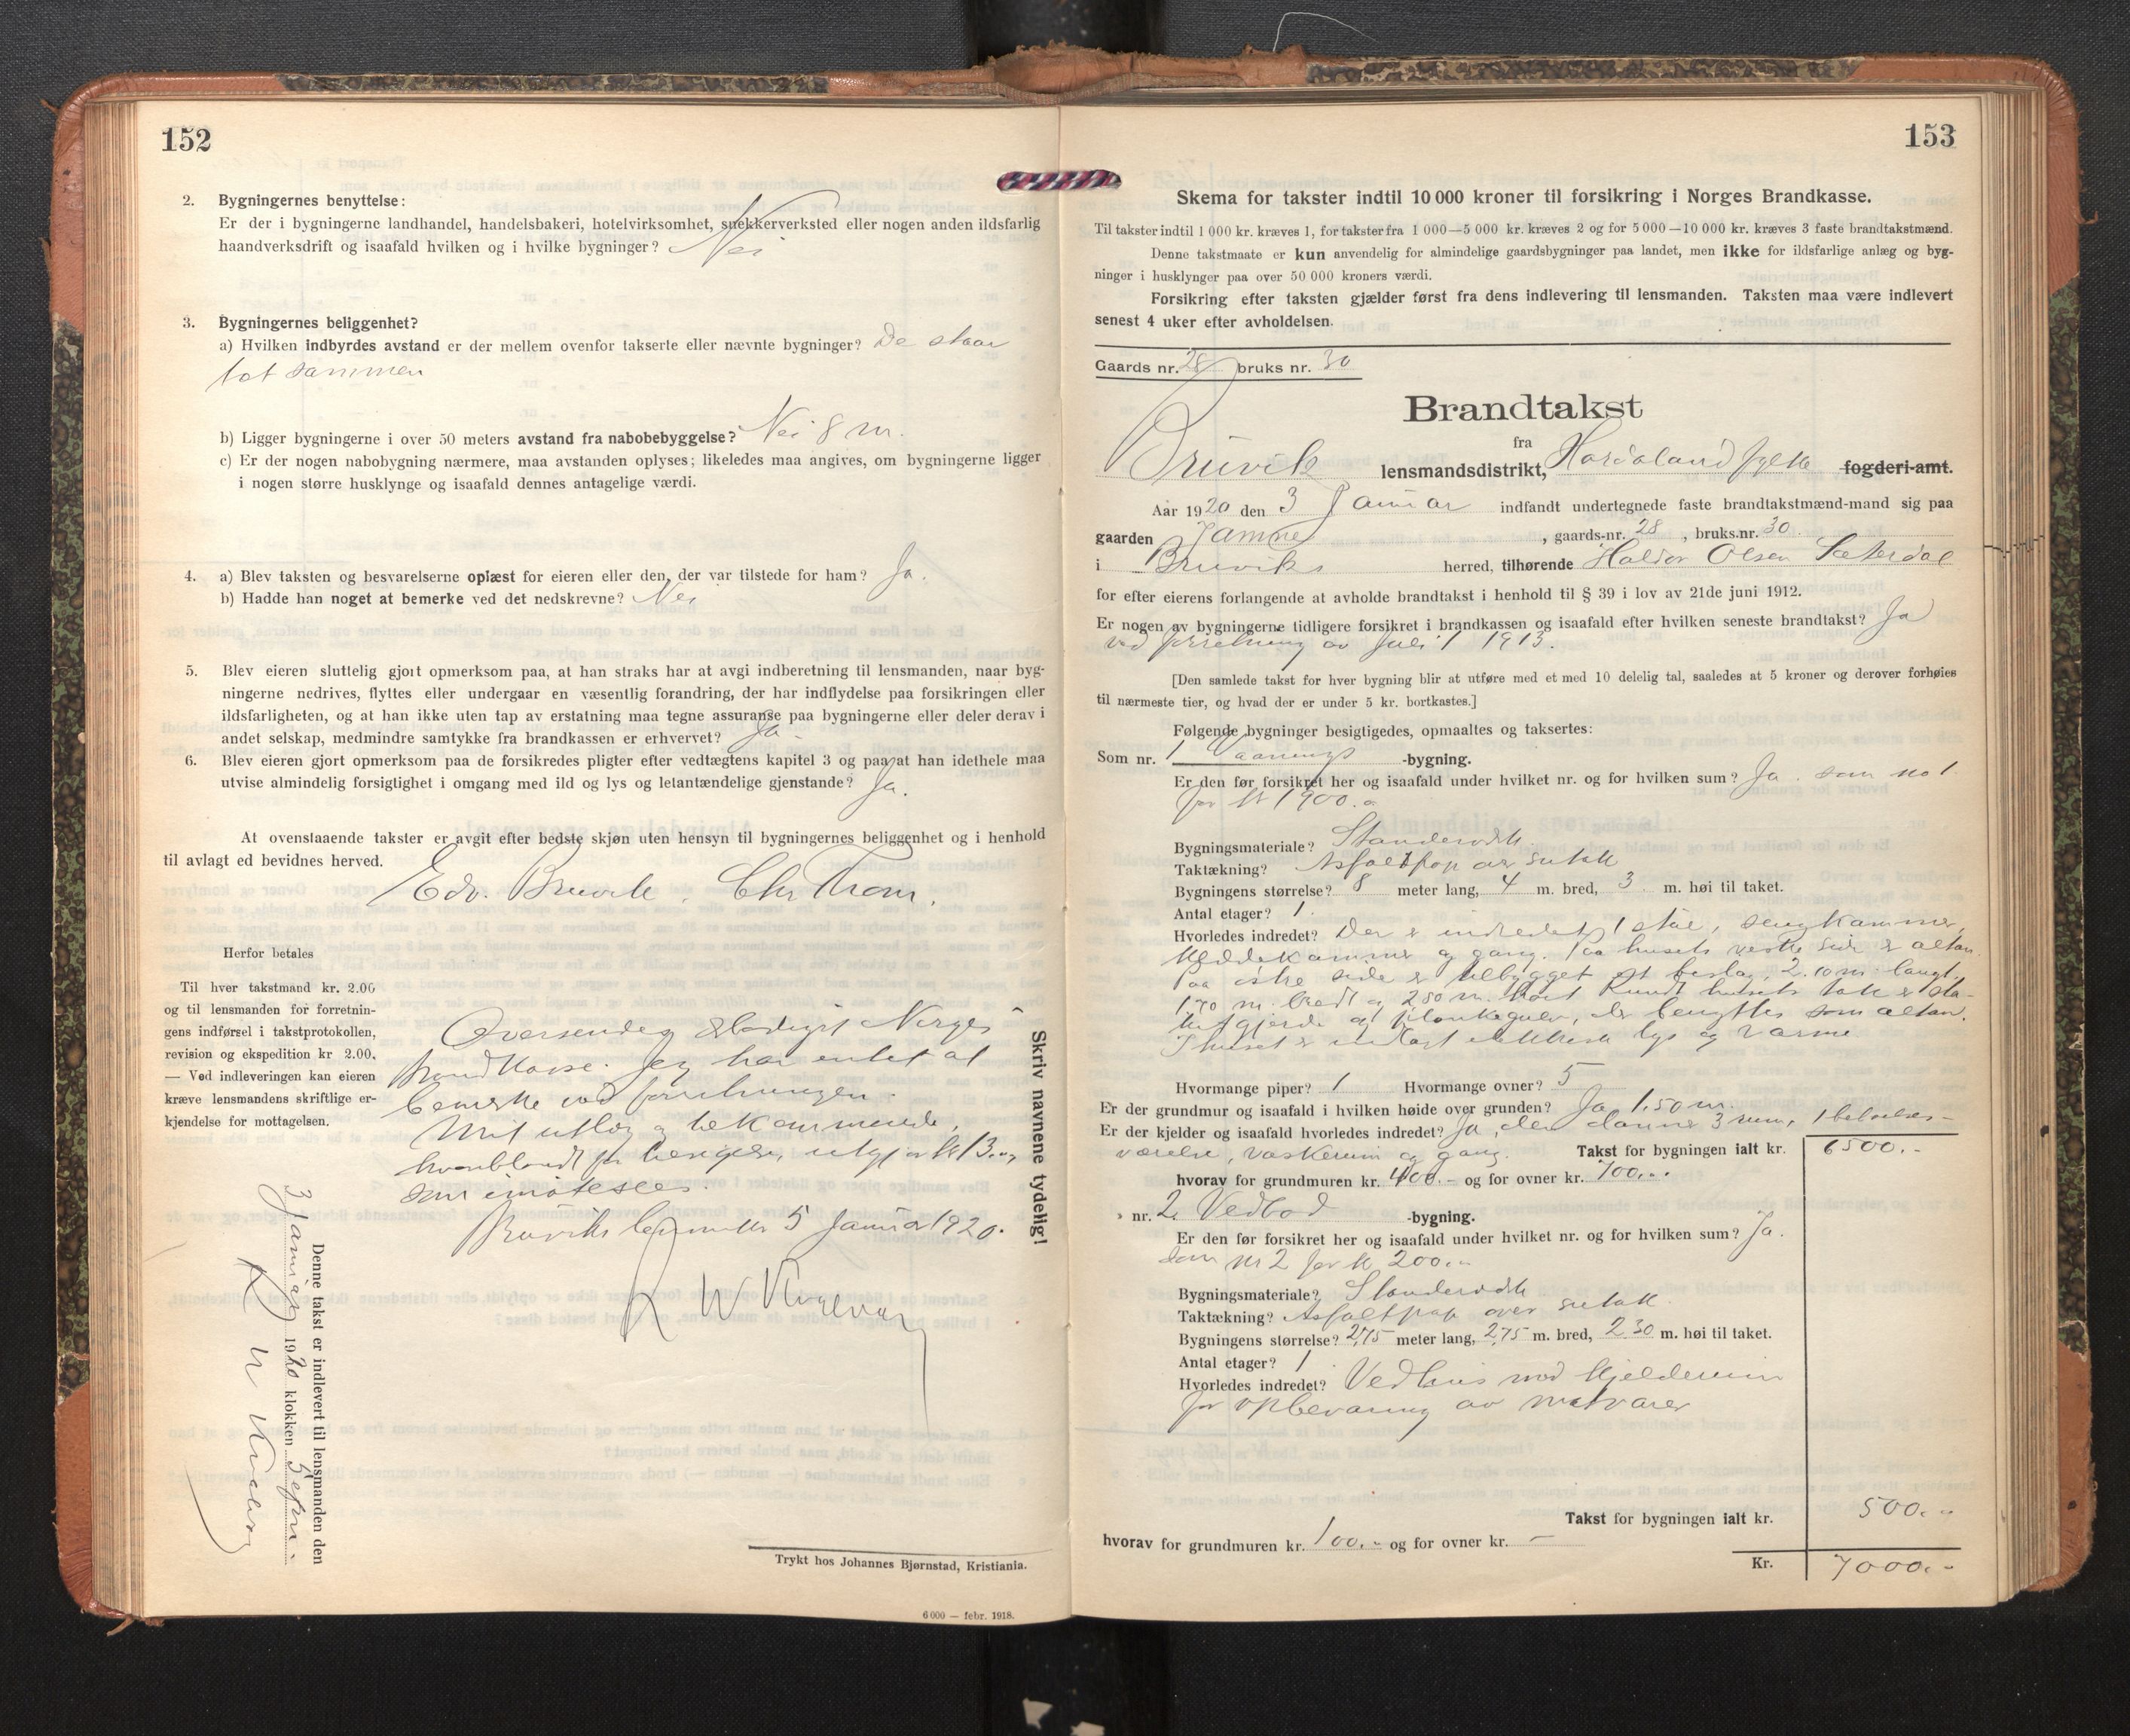 152
2. Bygningernes benyttelse:
Er der i bygningerne landhandel, handelsbakeri, hotelvirksomhet, snekkerverksted eller nogen anden ildsfarlig
haandverksdrift og isaafald hvilken og i hvilke bygninger? Nei
3. Bygningernes beliggenhet?
a) Hvilken indbyrdes avstand er der mellem ovenfor takserte eller nævnte bygninger? De staar
tæt sammen
b) Ligger bygningerne i over 50 meters avstand fra nabobebyggelse? Nei 8 m.
c) Er der nogen nabobygning nærmere, maa avstanden oplyses; likeledes maa angives, om bygningerne ligger
i nogen større husklynge og isaafald dennes antagelige værdi.
4. a) Blev taksten og besvarelserne oplæst for eieren eller den, der var tilstede for ham? Ja.
b) Hadde han noget at bemerke ved det nedskrevne? Nei
5. Blev eieren sluttelig gjort opmerksom paa, at han straks har at avgi indberetning til lensmanden, naar byg-
ningerne nedrives, flyttes eller undergaar en væsentlig forandring, der har indflydelse paa forsikringen eller
ildsfarligheten, og at han ikke uten tap av erstatning maa tegne assuranse paa bygningerne eller deler derav i
andet selskap, medmindre samtykke fra brandkassen er erhvervet? Ja
6. Blev eieren gjort opmerksom paa de forsikredes pligter efter vedtægtens kapitel 3 og paa at han idethele maa
utvise almindelig forsigtighet i omgang med ild og lys og letantændelige gjenstande? Ja.
At ovenstaaende takster er avgit efter bedste skjøn uten hensyn til bygningernes beliggenhet og i henhold
til avlagt ed bevidnes herved.
Edv. Bruvik. Chr Tram.
Herfor betales
Til hver takstmand kr. 2.00
og til lensmanden for forretnin-
gens indførsel i takstprotokollen,
revision og ekspedition kr 2.00.
— Ved indleveringen kan eieren
kræve lensmandens skriftlige er-
kjendelse for mottagelsen.
Oversendes Norges
Brandkasse. Jeg har intet at
bemerke ved forretningen.
Mit utlæg
hvoriblandt for utgjør kr 13.00,
som imøtesees.
Bruviks 5 Januar 1920.
Skriv navnene tydelig!
Denne takst er indlevert til lensmanden den
3 Januar 1920 klokken 5 efm.
Trykt hos Johannes Bjørnstad, Kristiania.
6 000 — febr. 1918.
153
Skema for takster indtil 10 000 kroner til forsikring i Norges Brandkasse.
Til takster indtil 1 000 kr. kræves 1, for takster fra 1 000—5 000 kr. kræves 2 og for 5 000—10 000 kr. kræves 3 faste brandtakstmænd.
Denne takstmaate er kun anvendelig for almindelige gaardsbygninger paa landet, men ikke for ildsfarlige anlæg og byg-
ninger i husklynger paa over 50 000 kroners værdi.
Forsikring efter taksten gjælder først fra dens indlevering til lensmanden. Taksten maa være indlevert
senest 4 uker efter avholdelsen.
Gaards nr. 28 bruks nr. 30
Brandtakst
fra
Bruvik lensmandsdistrikt, Hordaland fylke fogderi-amt.
Aar 1920 den 3 Januar indfandt undertegnede faste brandtakstmænd-mand sig paa
gaarden Jamne, gaards-nr. 28, bruks-nr. 30
i Bruviks herred, tilhørende Haldor Olsen Sæterdal
for efter eierens forlangende at avholde brandtakst i henhold til § 39 i lov av 21de juni 1912.
Er nogen av bygningerne tidligere forsikret i brandkassen og isaafald efter hvilken seneste brandtakst? Ja
ved forretning av Juli 1913.
[Den samlede takst for hver bygning blir at utføre med et med 10 delelig tal, saaledes at 5 kroner og derover forhøies
til nærmeste tier, og hvad der er under 5 kr. bortkastes.]
Følgende bygninger besigtigedes, opmaaltes og taksertes:
Som nr. 1 Vaanings -bygning.
Er den før forsikret her og isaafald under hvilket nr. og for hvilken sum? Ja. som no 1
for kr 1900.-
Bygningsmateriale? Standerverk
Taktækning? Asfaltpap over sutak
Bygningens størrelse? 8 meter lang, 4 m. bred, 3 m. høi til taket.
Antal etager? 1.
Hvorledes indredet? Der er indredet 1 stue, sengkammer,
klædekammer og gang. Paa husets vestre side er altan
Paa østre side er tilbygget et bislag, 2.10 m. langt,
1.70 m. bredt og 2.50 m. høit Rundt husets tak er sta-
kitgjerde og plankegulv, der benyttes som altan.
I huset er indlagt elektrisk lys og varme
Hvormange piper? 1 Hvormange ovner? 5
Er der grundmur og isaafald i hvilken høide over grunden? Ja 1.50 m.
Er der kjelder og isaafald hvorledes indredet? Ja, den danner 3 rum, 1 beboelses-
værelse, vaskerum og gang. Takst for bygningen ialt kr. 6500.-
hvorav for grundmuren kr. 400.- og for ovner kr. 700.-
» nr. 2. Vedbod -bygning.
Er den før forsikret her og isaafald under hvilket nr. og for hvilken sum? Ja.
som nr 2 for kr 200.-
Bygningsmateriale? Standerverk
Taktækning? Asfaltpap over sutak
Bygningens størrelse? 2,75 meter lang, 2,75 m. bred, 2.30 m. høi til taket.
Antal etager? 1.
Hvorledes indredet? Vedhus med kjelderrum
for opbevaring av matvarer
Takst for bygningen ialt kr. 500.-
hvorav for grundmuren kr. 100.- og for ovner kr. -
Kr. 7000.-